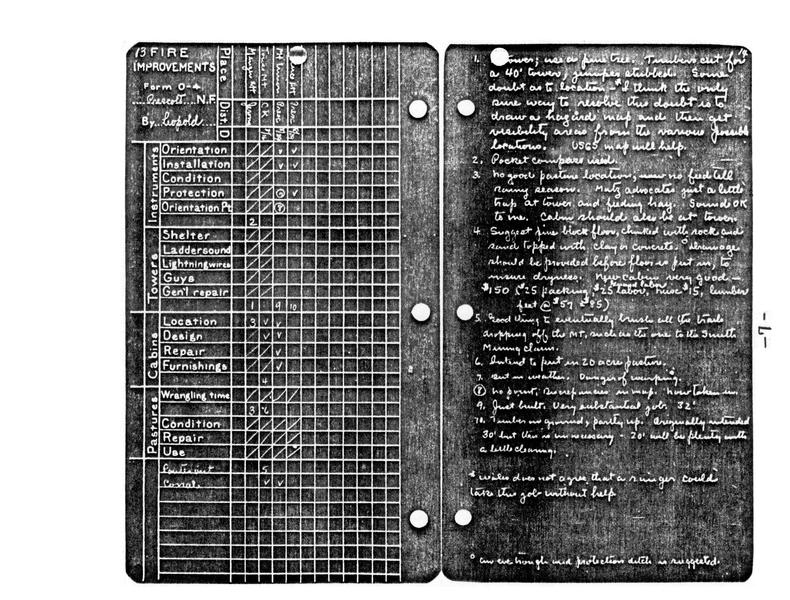 13 FIRE
IMPROVEMENTS
Form O-4
Prescott N.F.
By Leopold
Place
Dist. D
Instruments
Orientation
Installation
Condition
Protection
Orientation Pt
2
Towers
Shelter
Ladders sound
Lightning wires
Guys
Gen'l repair
1 9 10
Cabins
Location 3
Design
Repair
Furnishings
4
Pastures
Wrangling time
3
Condition
Repair
Use
5
Corral
14
1. Tower; use a pine tree. Timbers cut for
a 40' tower, juniper stubbed. Some
doubt as to location - I think the only
sure way to resolve this doubt is to
draw a hazard map and then get
visibility areas from the various possible
locations. USGS map will help.
2. Pocket compass used.
3. No good pasture location; no feed till
rainy season. Matz advocates just a little
trap at tower, and feeding hay. Sounds OK
to me. Cabin should also be at tower.
4. Suggest pine block floor, chinked with rock and
sand topped with clay or concrete. ° drainage
should be provided before floor is put in, to
insure dryness. New cabin very good -
$150 ($25 packing, $25 labor, misc $15, lumber
feet @ $57 = $85)
5. Good thing to eventually brush all the trails
dropping off the Mt, such as the one to the Smith
Mining claim.
6. Intend to put in 20 acre pasture.
7. Out in weather. Danger of warping.
8 No point, discrepancies in map.
9. Just built. Very substantial job. 32'
10. Timber on ground, partly up. Originally intended
30' but this is unnecessary - 20' will be plenty with
a little clearing.
* does not agree that a ranger could
take this job without help
° and protection ditch is suggested.
-7-